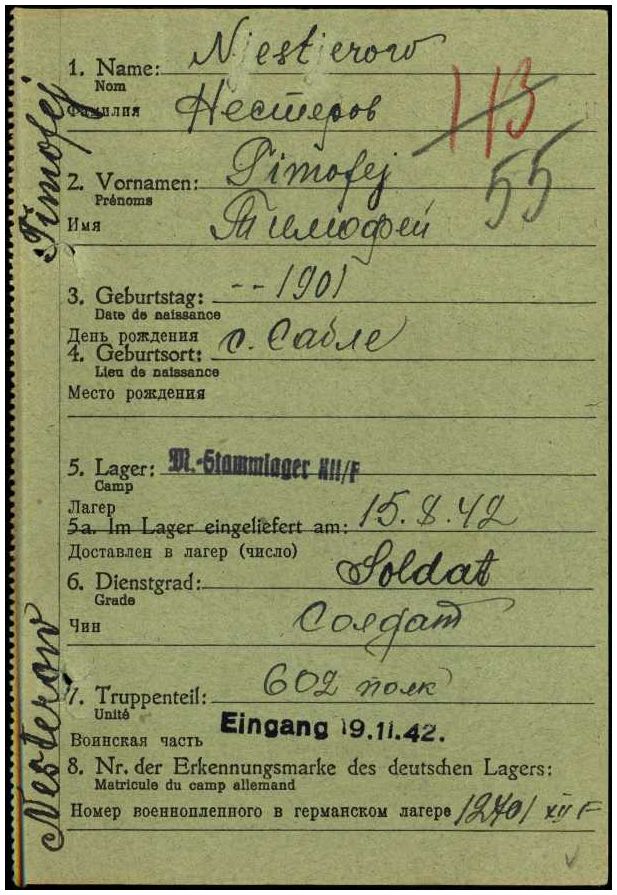 1. Name: Njestjerow
Nom
Фамилия Нестеров
113
2. Vornamen: Timofej
Prénoms
55
Имя Тимофей
3. Geburtstag: -- 1901
Date de naissance
День рождения
4. Geburtsort: с. Сабле
Lieu de naissance
Место рождения
5. Lager: M.-Stammlager XII/F
Camp
Лагер
5a. Im Lager eingeliefert am: 15.8.42
Доставлен в лагер (число)
6. Dienstgrad: Soldat
Grade
Чин Солдат
7. Truppenteil: 602 полк
Unité
Воинская часть Eingang 19.11.42.
8. Nr. der Erkennungsmarke des deutschen Lagers:
Matricule du camp allemand
Номер военнопленного в германском лагере 12401 XII F
Nesterow Timofej